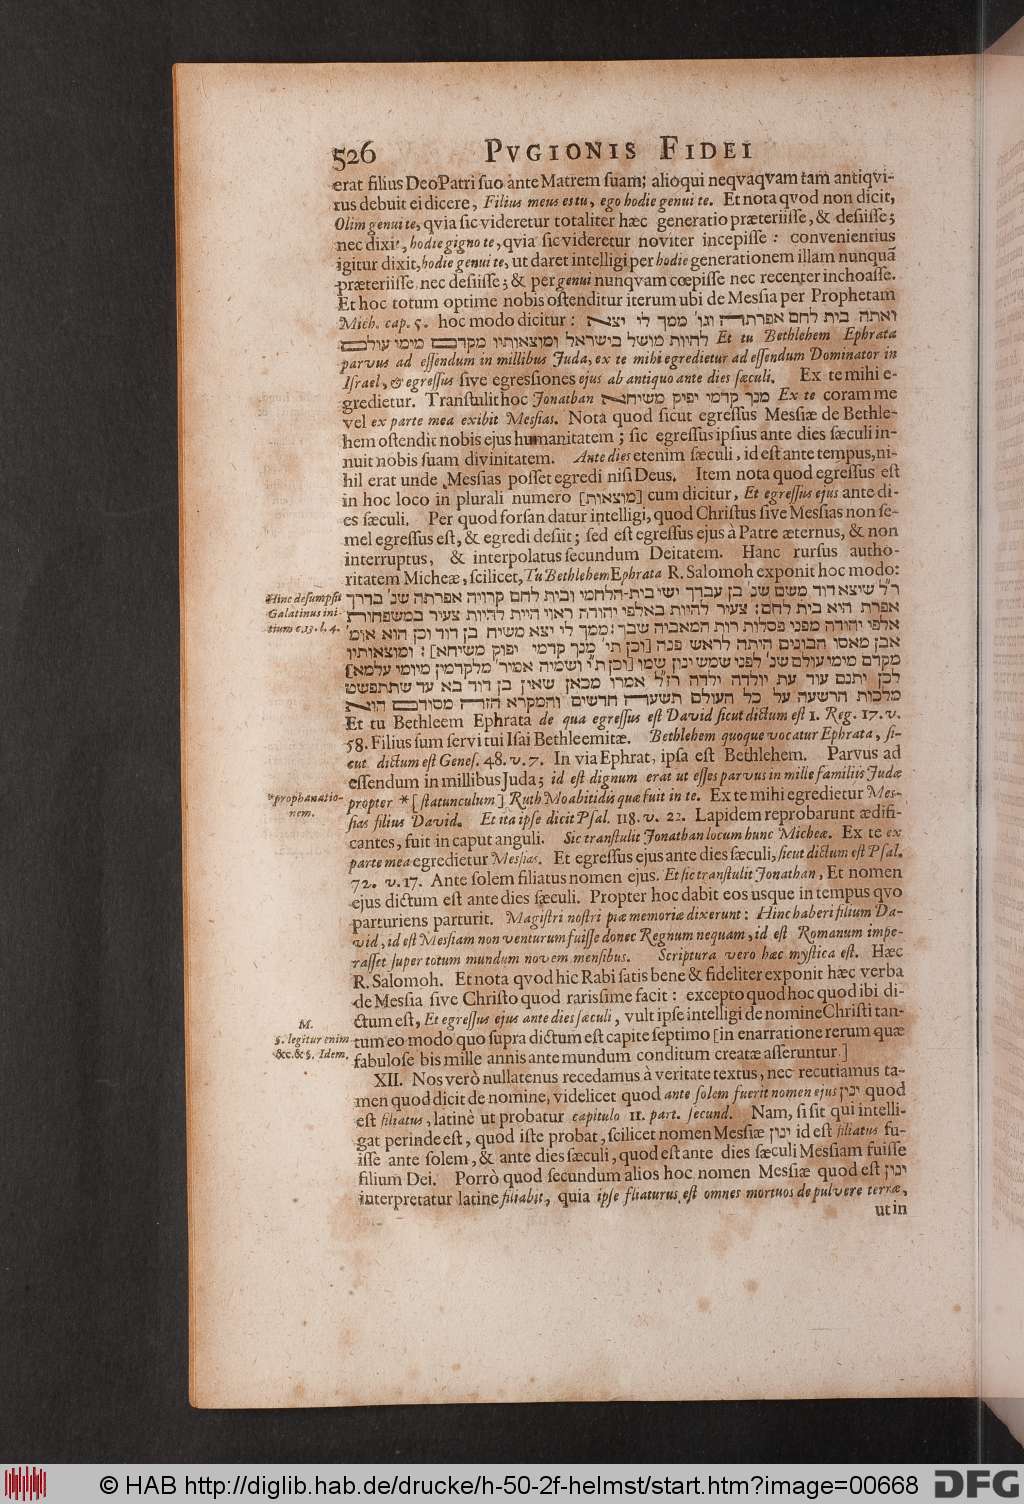 526 PVGIONIS FIDEI
erat filius Deo Patri suo ante Matrem suam; alioqui neqvaqvam tam antiqvi-
tus debuit ei dicere, Filius meus es tu, ego hodie genui te. Et nota qvod non dicit,
Olim genui te, qvia sic videretur totaliter hæc generatio præteriisse, & desiisse;
nec dixit, hodie gigno te, qvia sic videretur noviter incepisse: convenientius
igitur dixit, hodie genui te, ut daret intelligi per hodie generationem illam nunquã
præteriisse, nec desiisse; & per genui nunqvam cœpisse nec recenter inchoasse.
Et hoc totum optime nobis ostenditur iterum ubi de Messia per Prophetam
Mich. cap. 5. hoc modo dicitur: ואתה בית לחם אפרתה וגו' ממך לי יצא
להיות מושל בישראל ומוצאותיו מקדם מימי עולם Et tu Bethlehem Ephrata
parvus ad essendum in millibus Juda, ex te mihi egredietur ad essendum Dominator in
Israel, & egressus sive egressiones ejus ab antiquo ante dies sæculi. Ex te mihi e-
gredietur. Transtulit hoc Jonathan מנך קדמי יפיק משיחא Ex te coram me
vel ex parte mea exibit Messias. Nota quod sicut egressus Messiæ de Bethle-
hem ostendit nobis ejus humanitatem; sic egressus ipsius ante dies sæculi in-
nuit nobis suam divinitatem. Ante dies etenim sæculi, id est ante tempus, ni-
hil erat unde Messias posset egredi nisi Deus. Item nota quod egressus est
in hoc loco in plurali numero [מוצאות] cum dicitur, Et egressus ejus ante di-
es sæculi. Per quod forsan datur intelligi, quod Christus sive Messias non se-
mel egressus est, & egredi desiit; sed est egressus ejus à Patre æternus, & non
interruptus, & interpolatus secundum Deitatem. Hanc rursus autho-
ritatem Micheæ, scilicet, Tu Bethlehem Ephrata R. Salomoh exponit hoc modo:
Hinc desumpsit
Galatinus ini-
tium c. 13. l. 4.
ר"ל שיצא דוד משם שנ' בן עבדך ישי בית-הלחמי ובית לחם קרויה אפרתה שנ' בדרך
אפרת היא בית לחם: צעיר להיות באלפי יהודה ראוי היית להיות צעיר במשפחות
אלפי יהודה מפני פסלות רות המאביה שבך: ממך לי יצא משיח בן דוד וכן הוא אומ'
אבן מאסו הבונים היתה לראש פנה [וכן תי' מנך קדמי יפוק משיחא]: ומוצאותיו
מקדם מימי עולם שנ' לפני שמש ינון שמו [וכן ת"י ושמיה אמיר מלקדמין מיומי עלמא]
לכן יתנם עוד עת יולדה ילדה רז"ל אמרו מכאן שאין בן דוד בא עד שתתפשט
מלכות הרשעה על כל העולם תשעה חדשים והמקרא הזה מסודם הוא
Et tu Bethleem Ephrata de qua egressus est David sicut dictum est 1. Reg. 17. v.
58. Filius sum servi tui Isai Bethleemitæ. Bethlehem quoque vocatur Ephrata, si-
cut dictum est Genes. 48. v. 7. In via Ephrat, ipsa est Bethlehem. Parvus ad
essendum in millibus Juda; id est dignum erat ut esses parvus in mille familiis Judæ
* prophanatio-
nem.
propter * [statunculum] Ruth Moabitidis quæ fuit in te. Ex te mihi egredietur Mes-
sias filius David. Et ita ipse dicit Psal. 118. v. 22. Lapidem reprobarunt ædifi-
cantes, fuit in caput anguli. Sic transtulit Jonathan locum hunc Micheæ. Ex te ex
parte mea egredietur Messias. Et egressus ejus ante dies sæculi, sicut dictum est Psal.
72. v. 17. Ante solem filiatus nomen ejus. Et sic transtulit Jonathan, Et nomen
ejus dictum est ante dies sæculi. Propter hoc dabit eos usque in tempus qvo
parturiens parturit. Magistri nostri piæ memoriæ dixerunt: Hinc haberi filium Da-
vid, id est Messiam non venturum fuisse donec Regnum nequam, id est Romanum impe-
rasset super totum mundum novem mensibus. Scriptura vero hæc mystica est. Hæc
R. Salomoh. Et nota qvod hic Rabi satis bene & fideliter exponit hæc verba
de Messia sive Christo quod rarissime facit: excepto quod hoc quod ibi di-
ctum est, Et egressus ejus ante dies sæculi, vult ipse intelligi de nomine Christi tan-
M.
§. legitur enim
&c. & §. Idem.
tum eo modo quo supra dictum est capite septimo [in enarratione rerum quæ
fabulose bis mille annis ante mundum conditum creatæ asseruntur]
XII. Nos verò nullatenus recedamus à veritate textus, nec recutiamus ta-
men quod dicit de nomine, videlicet quod ante solem fuerit nomen ejus ינון quod
est filiatus, latinè ut probatur capitulo 11. part. secund. Nam, si sit qui intelli-
gat perinde est, quod iste probat, scilicet nomen Messiæ ינון id est filiatus fu-
isse ante solem, & ante dies sæculi, quod est ante dies sæculi Messiam fuisse
filium Dei. Porrò quod secundum alios hoc nomen Messiæ quod est ינון
interpretatur latine filiabit, quia ipse filiaturus est omnes mortuos de pulvere terræ,
ut in
© HAB http://diglib.hab.de/drucke/h-50-2f-helmst/start.htm?image=00668 DFG